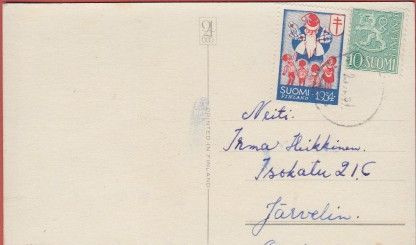 SUOMI
FINLAND 1954
10 SUOMI
PRINTED IN FINLAND
Neiti.
Irma Heikkinen.
Isokatu 21 C
Järvelin.